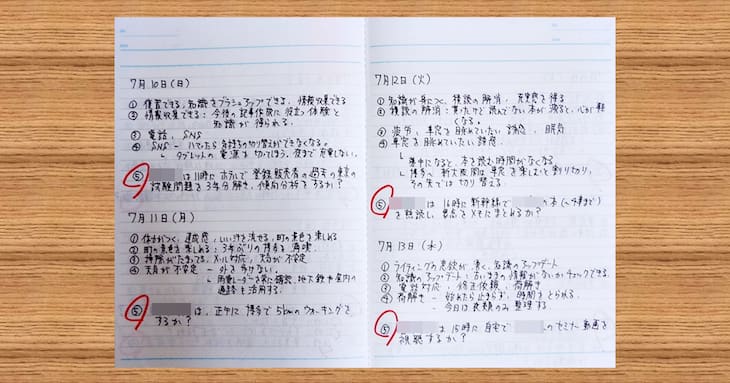 7月10日(日)
① 復習できる, 知識をブラシュアップできる, 情報収集できる
② 情報収集できる : 今後の記事作成に役立つ体験と
知識が得られる.
③ 電話, SNS
④ SNS - ハマったら気持ちの切り替えができなくなる。
↳ タブレットの電源を切ってしまう. 夜まで充電しない.
⑤ は11時にホテルで登録販売者の過去の東京の
試験問題を3年分解き, 傾向分析をするか?
7月11日(月)
① 体力がつく, 達成感, いい汗を流せる, 町の景色を楽しめる
② 町の景色を楽しめる : 3年ぶりの博多を満喫.
③ 掃除がたまってる, メール対応, 天気が不安定
④ 天気が不安定 - 外を歩けない.
↳ 雨雲レーダーで常に確認. 地下鉄や屋内の
通路を活用する.
⑤ は, 正午に博多で5kmのウォーキングを
するか?
7月12日(火)
① 知識が身につく, 積読の解消, 充実感を得る
② 積読の解消 : 買ったけど読んでない本が減ると, 心が軽
くなる.
③ 疲労, 車窓を眺めていたい誘惑, 眠気
④ 車窓を眺めていたい誘惑
↳ 集中になると, 本を読む時間がなくなる
↳ 博多〜新大阪間は車窓を楽しむと割り切り,
その先では切り替える.
⑤ は16時に新幹線での本(〜章まで)
を熟読し, 要点をメモにまとめるか?
7月13日(水)
① ライティングの意欲が湧く, 知識のアップデート
② 知識のアップデート : 古いままの情報がないかチェックできる.
③ 電話対応, 修正依頼, 荷解き
④ 荷解き - 始めたら止まらず, 時間をとられる.
- 今日は衣類のみ整理する
⑤ は15時に自宅でのセミナー動画を
視聴するか?